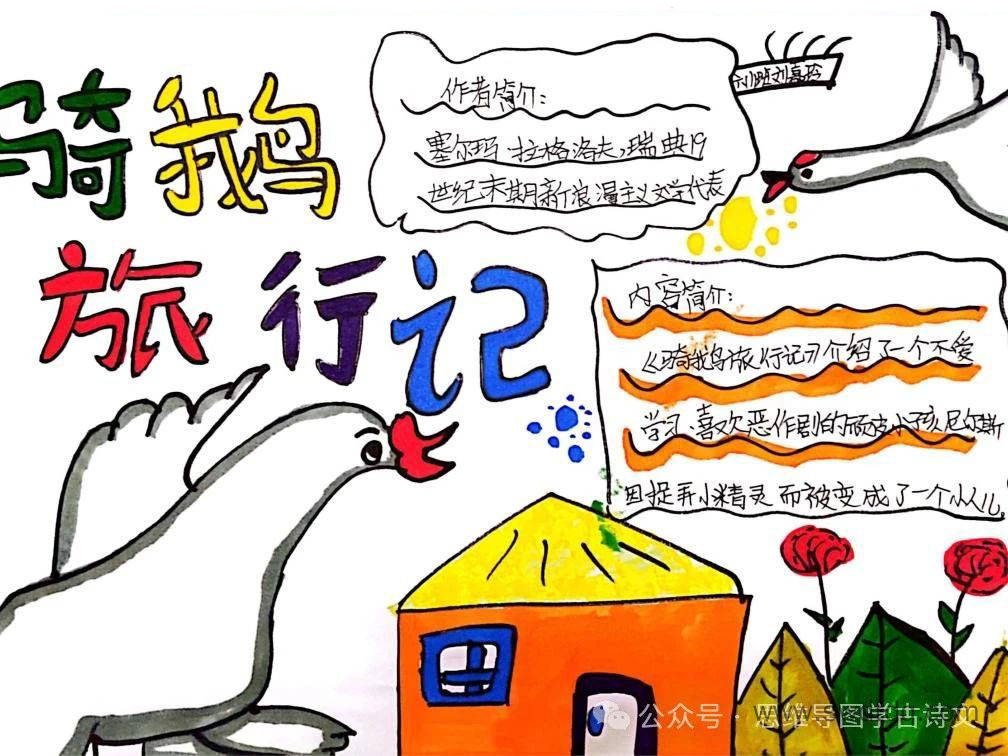 骑鹅
旅行记
作者简介:
塞尔玛·拉格洛夫,瑞典19
世纪末期新浪漫主义文学代表
内容简介:
《骑鹅旅行记》介绍了一个不爱
学习、喜欢恶作剧的顽皮小孩尼尔斯
因捉弄小精灵而被变成了一个小人儿
公众号·思维导图学古诗文